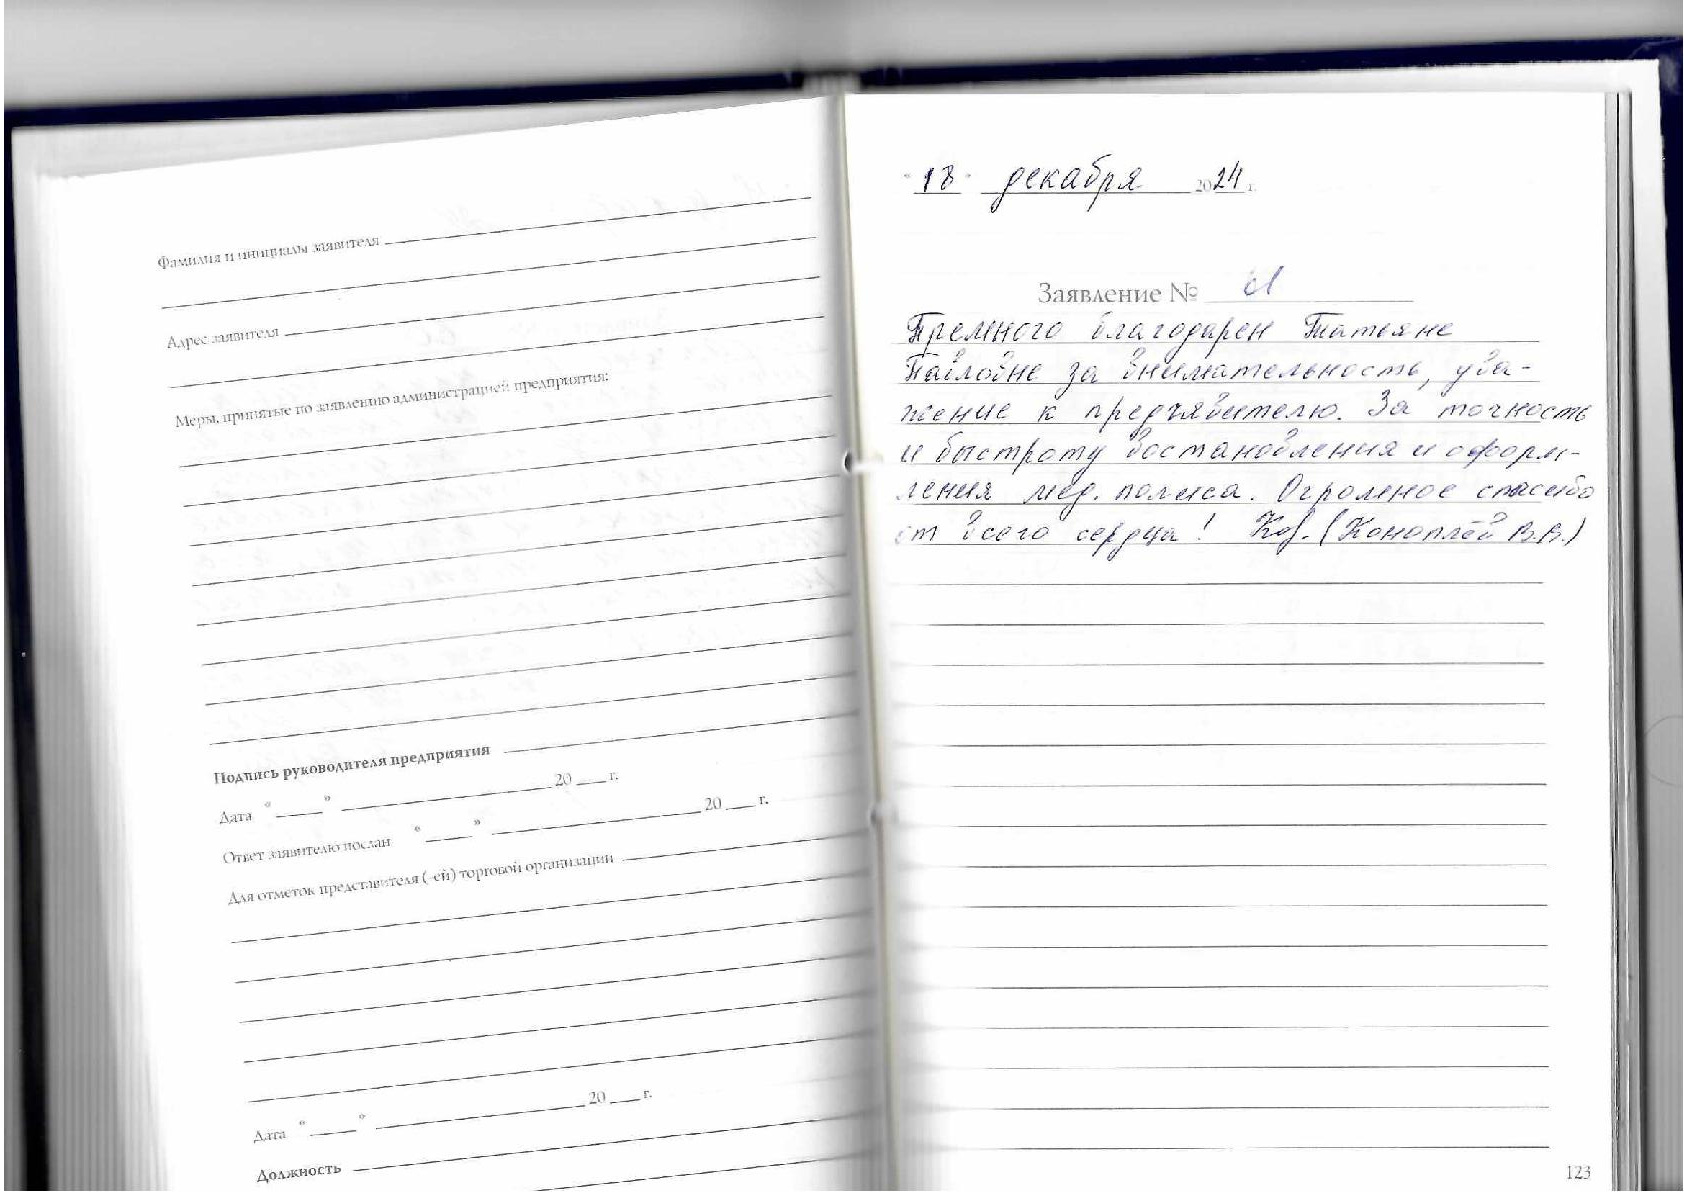 Фамилия и инициалы заявителя
Адрес заявителя
Меры, принятые по заявлению администрацией предприятия:
Подпись руководителя предприятия
Дата “ ” 20 г.
Ответ заявителю послан “ ” 20 г.
Для отметок представителя (-ей) торговой организации
Дата “ ” 20 г.
Должность
“18” декабря 2024 г.
Заявление №
Премного благодарен Татьяне
Павловне за внимательность, ува-
жение к предъявителю. За точность
и быстроту востановления и оформ-
ления мед. полиса. Огромное спасибо
от всего сердца! (Коноплёв В.В.)
123